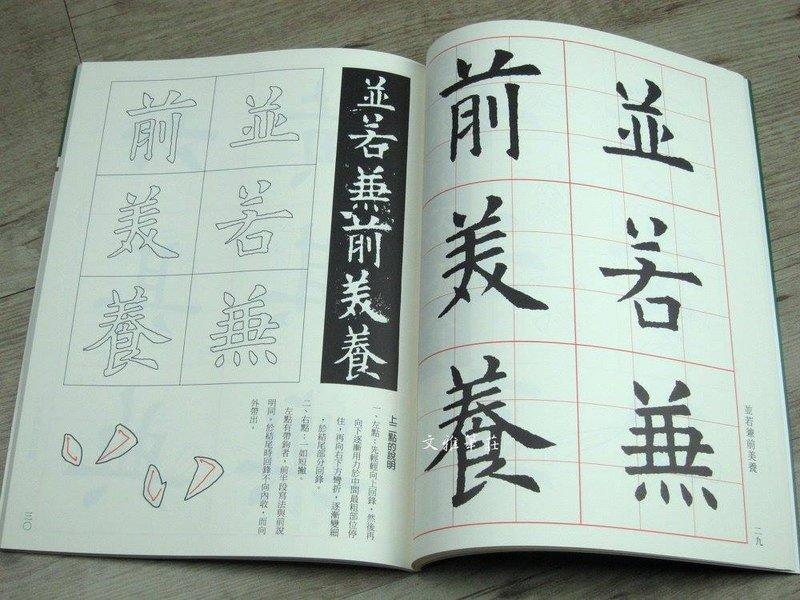 並若兼前美養
並若兼
前美養
二九
文雅筆莊
並若兼前美養
並若兼
前美養
上二點的說明
一、左點：先輕輕向上回鋒，然後再
向下逐漸用力於中間最粗部位停
住，再向右下方彎折，逐漸變細
，於結尾部分回鋒。
二、右點：一如短撇。
左點有帶鉤者，前半段寫法與前說
明同，於結尾時回鋒不向內收，而向
外帶出。
三〇